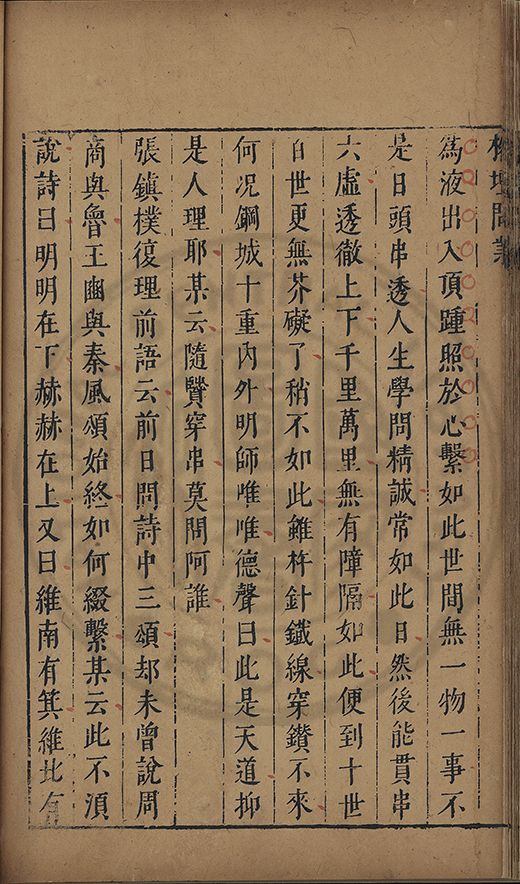 榕壇問業
爲液出入頂踵照於心繫如此世間無一物一事不
是日頭串透人生學問精誠常如此日然後能貫串
六虛透徹上下千里萬里無有障隔如此便到十世
百世更無芥礙了稍不如此雖杵針鐵線穿鑽不來
何况鋼城十重內外明師唯唯德聲曰此是天道抑
是人理耶某云隨贒穿串莫問阿誰
張鎮樸復理前語云前日問詩中三頌却未曾說周
商與魯王豳與秦風頌始終如何綴繫某云此不湏
說詩曰明明在下赫赫在上又曰維南有箕維北有